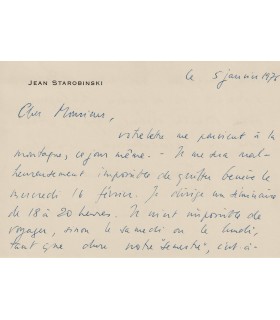 JEAN STAROBINSKI
le 5 janvier 197
Cher Monsieur,
votre lettre me parvient à la
montagne, ce jour même. - Il me sera mal-
heureusement impossible de quitter Genève le
mercredi 16 février. Je dirige un séminaire
de 18 à 20 heures. Il m'est impossible de
voyager, sinon le samedi ou le lundi,
tant que dure notre "semestre", c'est-à-